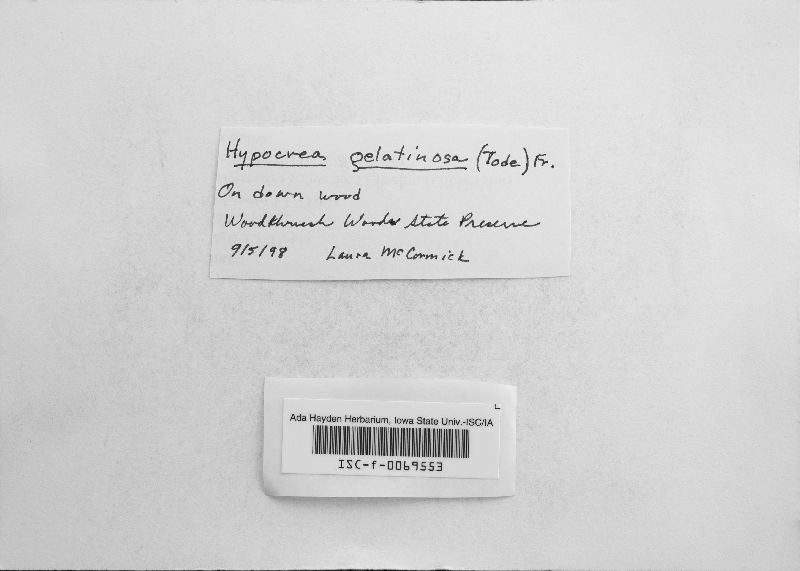 Hypocrea gelatinosa (Tode) Fr.
On down wood
Woodthrush Woods State Preserve
9/5/98 Laura McCormick
Ada Hayden Herbarium, Iowa State Univ.-ISC/IA
ISC-f-0069553